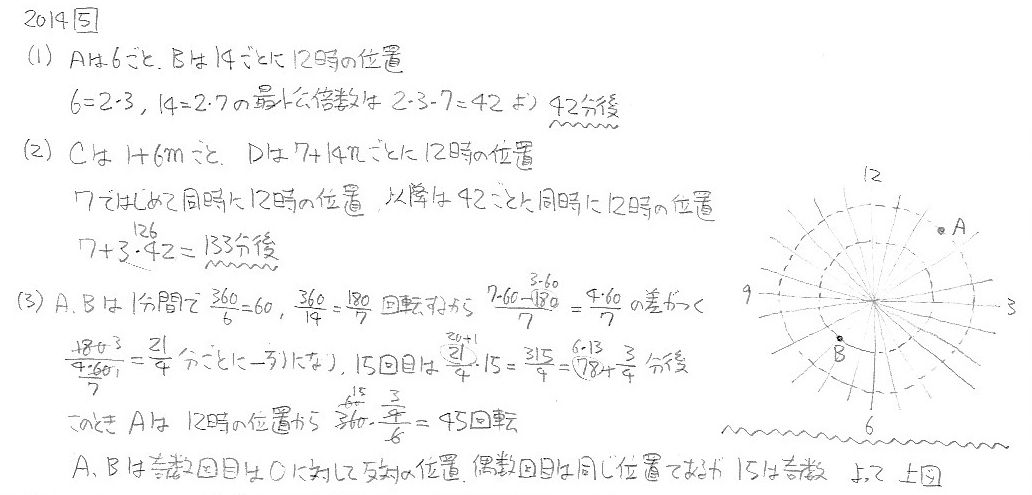 2014 5
(1) Aは6ごと、Bは14ごとに12時の位置
6=2・3, 14=2・7の最小公倍数は 2・3・7=42より 42分後
(2) Cは 1+6mごと、Dは7+14nごとに12時の位置
7ではじめて同時に12時の位置、以降は42ごとに同時に12時の位置
7+3・42=133分後
126
(3) A、Bは1分間で 360/6=60, 360/14=180/7 回転するから (7・60-180)/7=4・60/7 の差がつく
3・60
180/(4・60/7)=21/4 分ごとに一列になり、15回目は 21/4・15=315/4=78+3/4 分後
3 1 20+1 6・13
このとき Aは 12時の位置から 360・(3/4)/6=45回転
60 15
A、Bは奇数回目はOに対して反対の位置、偶数回目は同じ位置であるが 15は奇数 よって 上図
12
A
9
3
B
6